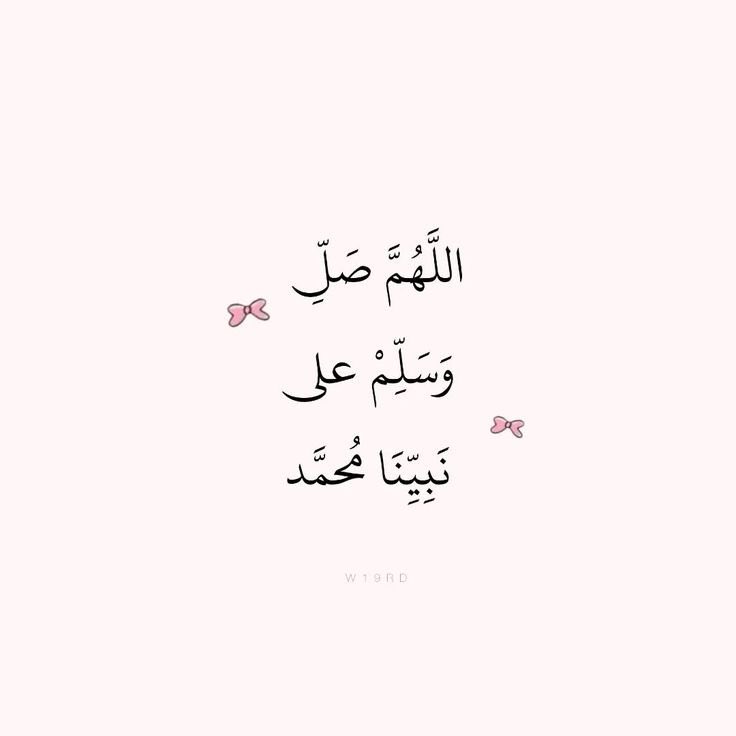 اللَّهُمَّ صَلِّ
وَسَلِّمْ على
نَبِيِّنَا مُحمَّد
W19RD